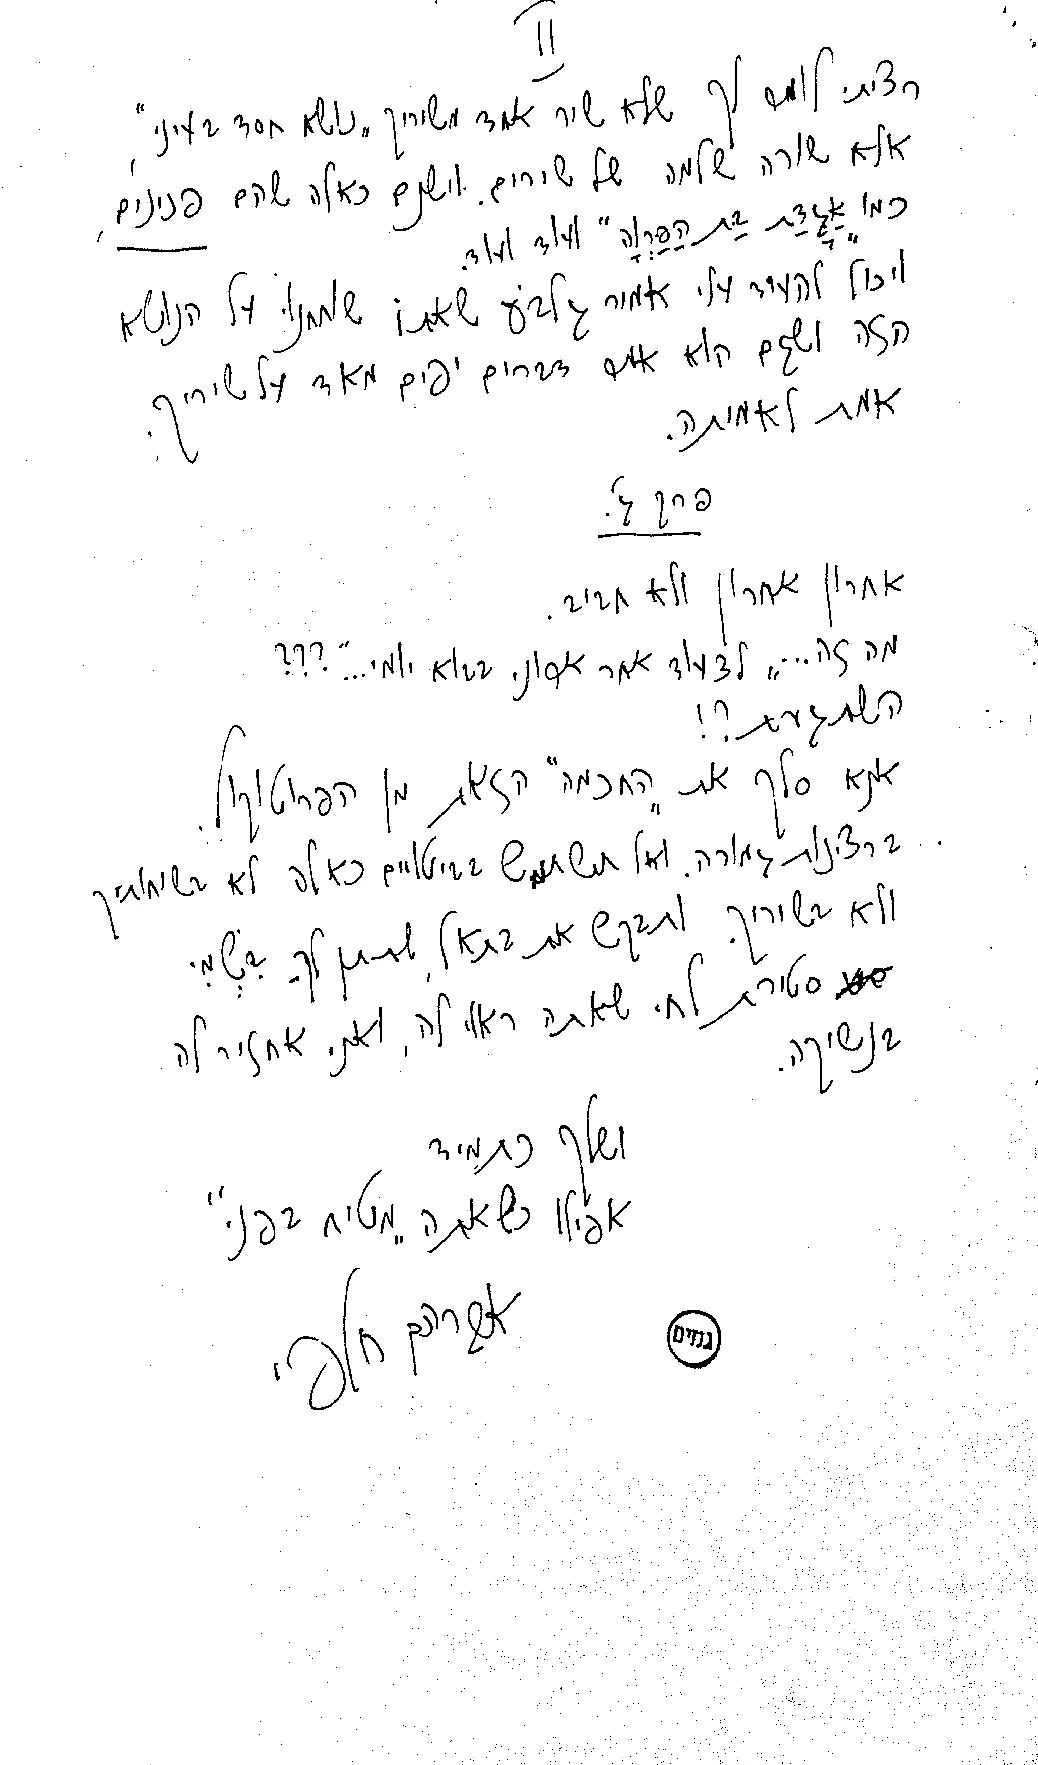 II
רציתי לומר לך שלא שיר אחד משיריך „נושא חסד בעיני",
אלא שורה שלמה של שירים. וישנם כאלה שהם פנינים,
כמו „אַגָּדַת בַּת הַפַּרְוָה" ועוד ועוד.
ויכול להעיד עלי אמיר גלבע שאתו שוחחנו על הנושא
הזה ושגם הוא אמר דברים יפים מאד על שיריך.
אמת לאמיתה.
פרק ג'.
אחרון אחרון ולא חביב.
מה זה...„ לצעוד אחר ארוני בבוא יומי..."???
השתגעת?!
אנא סלק את „החכמה" הזאת מן הפרוטוקול.
ברצינות גמורה. ואל תשתמש בביטויים כאלה לא בשיחותיך
ולא בשיריך. ותבקש את בתאל, שתתן לךָ בִּשְׁמִי
סטירת לחי שאתה ראוי לה, ואני אחזיר לה
בנשיקה.
ושלך כתמיד
אפילו כשאתה „מטיח בפני"
אברהם חלפי
גנזים